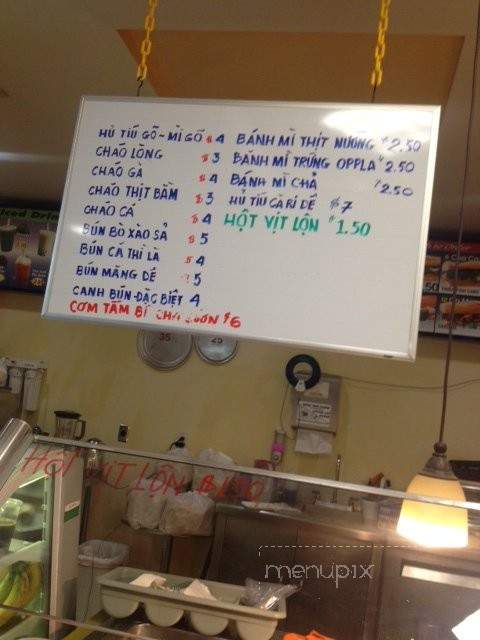 HỦ TIẾU GÕ - MÌ GÕ $4
CHÁO LÒNG $3
CHÁO GÀ $4
CHÁO THỊT BẰM $3
CHÁO CÁ $4
BÚN BÒ XÀO SẢ $5
BÚN CÁ THÌ LÀ $4
BÚN MĂNG DÊ $5
CANH BÚN - ĐẶC BIỆT 4
CƠM TẤM BÌ $6
BÁNH MÌ THỊT NƯỚNG $2.50
BÁNH MÌ TRỨNG OPPLA $2.50
BÁNH MÌ CHẢ $2.50
HỦ TIẾU CÀRI DÊ $7
HỘT VỊT LỘN $1.50
35
25
HỘT VỊT LỘN
menupix